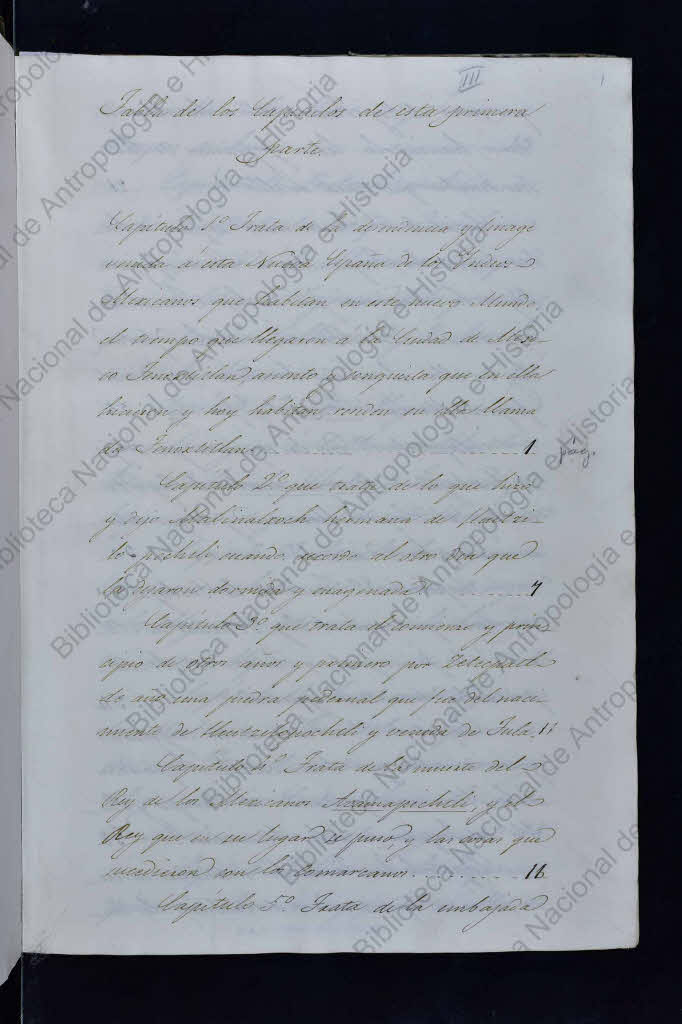 III
1
Tabla de los Capitulos de esta primera
parte.
Capitulo 1º Trata de la de numica y linage
venida á esta Nueva España de los Indios
Mexicanos que habitan en este nuevo Mundo
el tiempo que llegaron a la Ciudad de Mexi-
co Tenoxtitlan, aciento y conquista que en ella
hicieron y hoy habitan, reciden en ella llama
da Tenoxtitlan 1 pág.
Capitulo 2º que trata de lo que hizo
y dijo Malinalxoch hermana de Huitzi-
lo-pochtli cuando recordo al otro dia que
la dejaron dormida y enagenada 7
Capitulo 3º que trata el comienzo y prin-
cipio de otros años y primero por
do año una piedra pedernal que fué del naci-
miento de Huitzilopochtli y venida de Tula 11
Capitulo 4º Trata de la muerte del
Rey de los Mexicanos Acamapichtli, y el
Rey que en su lugar se puso, y las cosas que
sucedieron con los Comarcanos 16
Capitulo 5º Trata de la embajada
Biblioteca Nacional de Antropología e Historia